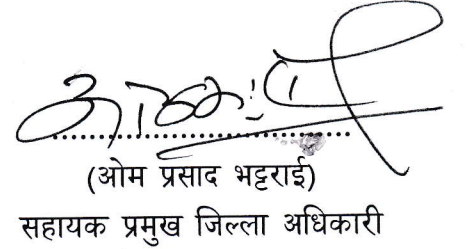 (ओम प्रसाद भट्टराई)
सहायक प्रमुख जिल्ला अधिकारी